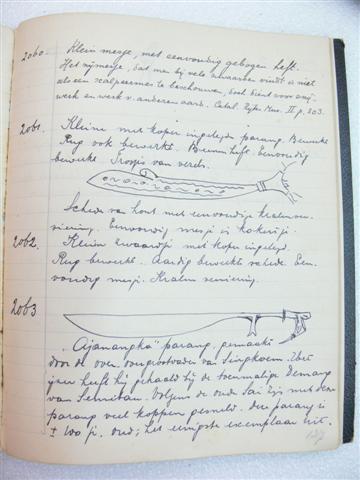 2060. Klein mesje, met eenvoudig gebogen heft.
Het mesje, dat men bij vele zwaarden vindt is niet
als een scalpeermes te beschouwen, doch dient voor snij-
werk en werk v. anderen aard. Catal. Rijks Mus. II p. 203.
2061. Kleine met koper ingelegde parang. Bewerkte
Rug ook bewerkt. Beenen heft. Eenvoudig
bewerkt. Trosjes van veeren.
Schede van hout met eenvoudige kralenver-
siering. Eenvoudig mesje in kokertje.
2062. Klein zwaardje met koper ingelegd.
Rug bewerkt. Aardig bewerkte schede. Een-
voudig mesje. Kralen versiering.
2063
"Ajanangka" parang, gemaakt
door de over
ijzer heeft hij gehaald bij de toenmalige Demang
van Semitau. Volgens de oude Sai zijn met deze
parang veel koppen gesneld. Deze parang is
± 100 j. oud; het eenigste exemplaar uit.